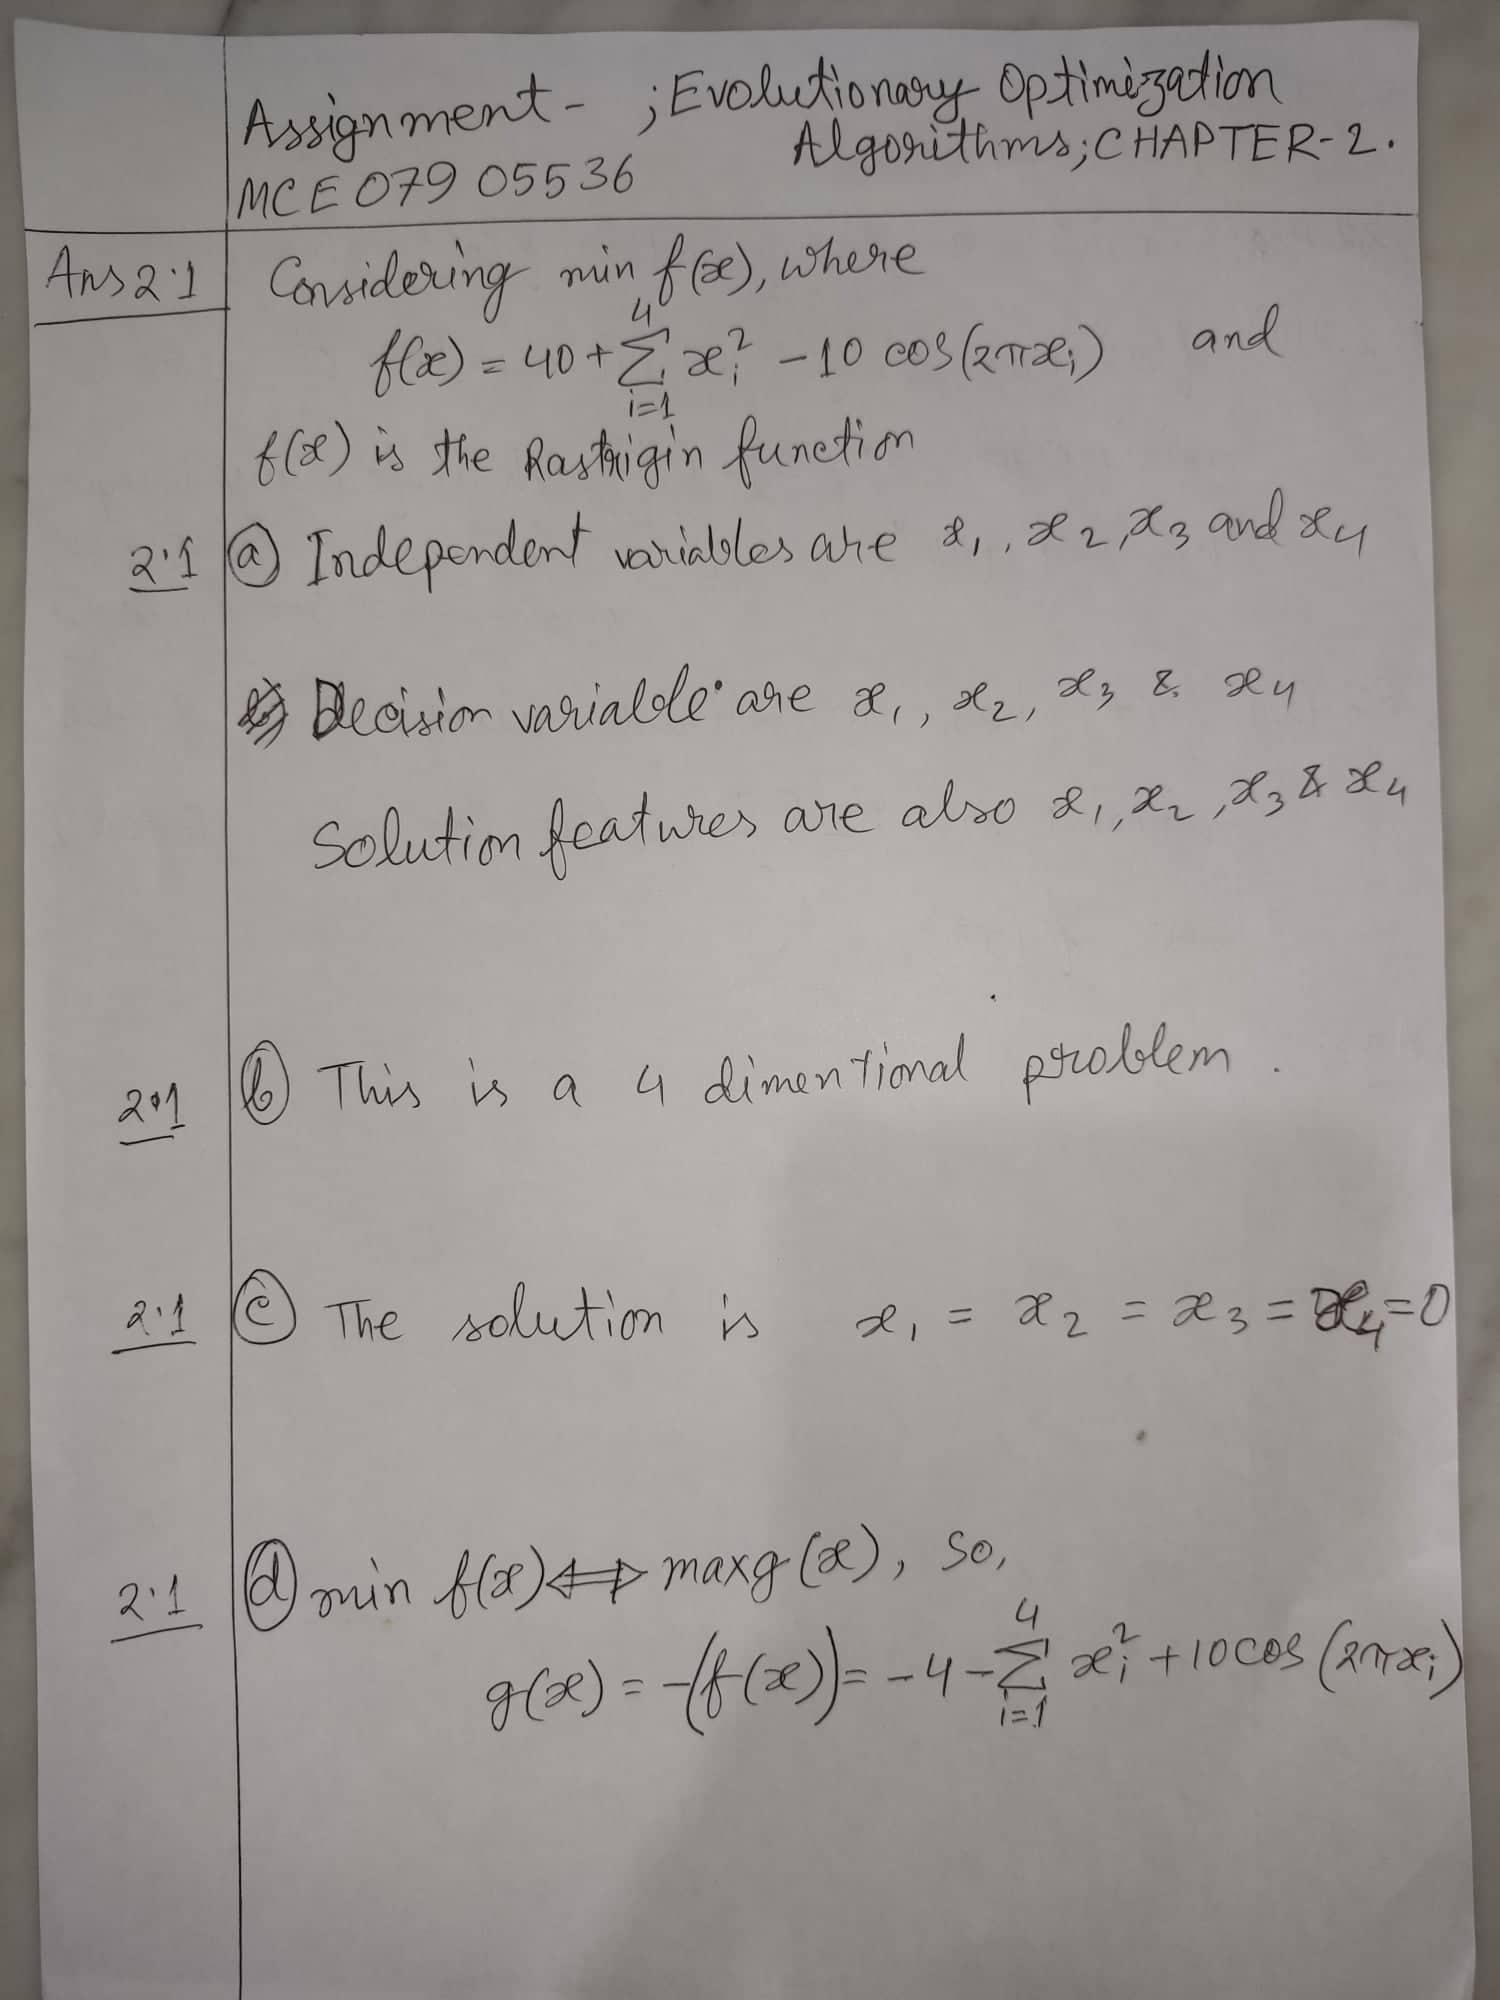 Assignment- ; Evolutionary Optimization
Algorithms; CHAPTER-2.
MCE 079 05536
Ans 2.1 Considering min f(x), where
f(x) = 40 + 4∑i=1 xi² - 10 cos(2πxi) and
f(x) is the Rastrigin function
2.1 (a) Independent variables are x1, x2, x3 and x4
Decision variable are x1, x2, x3 & x4
Solution features are also x1, x2, x3 & x4
2.1 (b) This is a 4 dimentional problem.
2.1 (c) The solution is x1 = x2 = x3 = x4 = 0
2.1 (d) min f(x) ⟺ max g(x), so,
g(x) = -(f(x)) = -4 - 4∑i=1 xi² + 10 cos (2πxi)